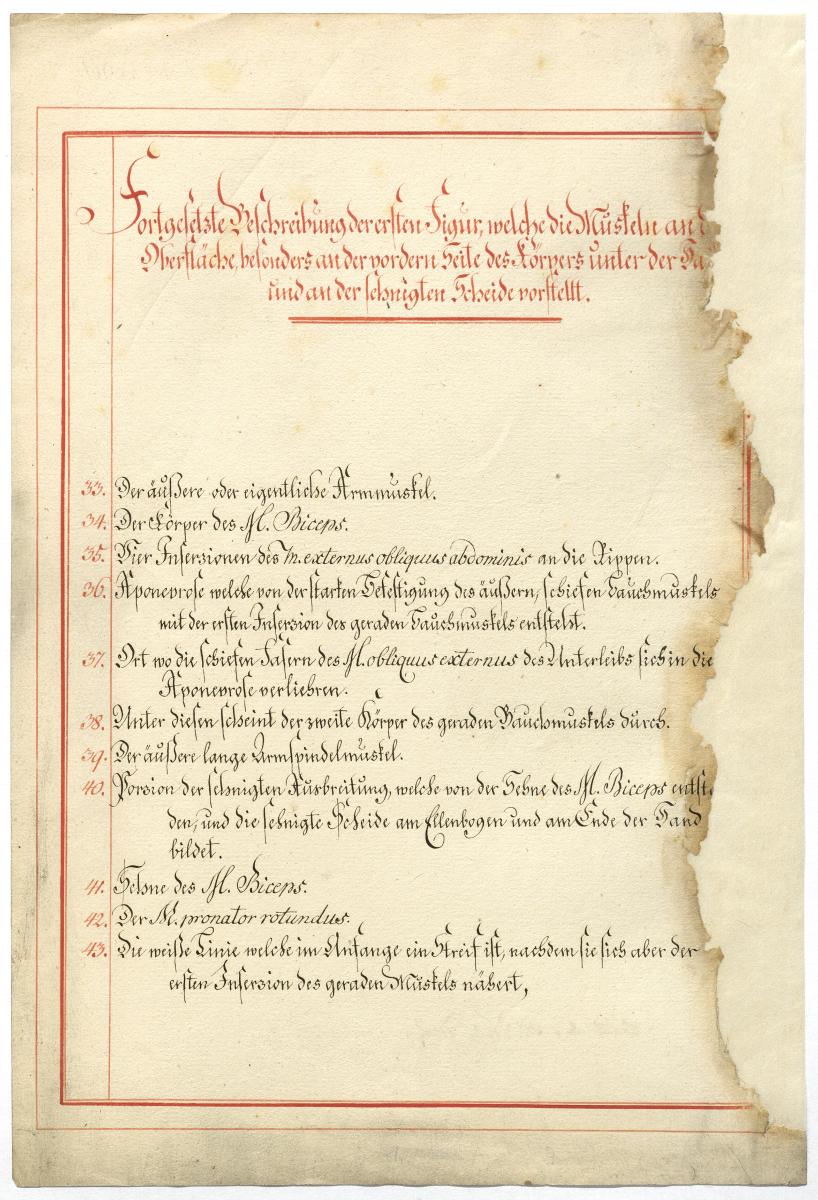 Fortgesetzte Beschreibung der ersten Figur, welche die Muskeln an d
Oberfläche, besonders an der vordern Seite des Körpers unter der Ha
und an der sehnigten Scheide vorstellt.
33. Der äußere oder eigentliche Armmuskel.
34. Der Körper des M. Biceps.
35. Vier Insersionen des m. externus obliquus abdominis an die Rippen.
36. Aponevrose welche von der starken Befestigung des äußern, schiefen Bauchmuskels
mit der ersten Insersion des geraden Bauchmuskels entsteht.
37. Ort wo die schiefen Fasern des M. obliquus externus des Unterleibs sich in die
Aponevrose verliehren.
38. Unter diesen scheint der zweite Körper des geraden Bauchmuskels durch.
39. Der äußere lange Armspindelmuskel.
40. Porsion der sehnigten Ausbreitung, welche von der Sehne des M. Biceps entst.
den, und die sehnigte Scheide am Ellenbogen und am Ende der Hand
bildet.
41. Sehne des M. Biceps.
42. Der M. pronator rotundus.
43. Die weiße Linie welche im Anfange ein Streif ist, nachdem sie sich aber der
ersten Insersion des geraden Muskels nähert,